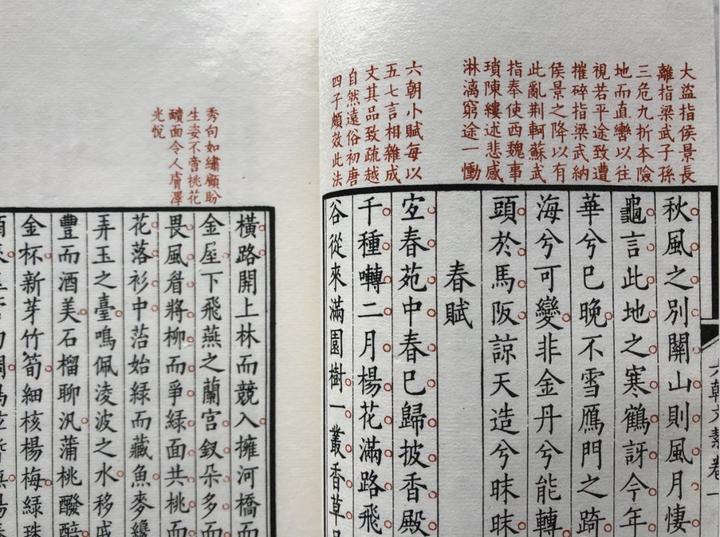 大盜指侯景長
離指梁武子孫
三危九折本險
地而直轡以往
視若平途致遭
摧碎指梁武納
侯景之降以有
此亂荆軻蘇武
指奉使西魏事
瑣陳縷述悲感
淋漓窮途一慟
六朝小賦每以
五七言相雜成
文其品致疏越
自然遠俗初唐
四子頗效此法
秋風之別關山則風月悽
龜言此地之寒鶴訝今年
華兮已晚不雪雁門之踦
海兮可變非金丹兮能轉
頭於馬阪諒天造兮昧昧
春賦
宐春苑中春已歸披香殿
千種囀二月楊花滿路飛
谷從來滿園樹一叢香草
秀句如繡顧盼
生姿不啻桃花
面令人膚澤
光悅
橫路開上林而競入擁河橋而
金屋下飛燕之蘭宮釵朵多而
畏風睂將柳而爭綠面共桃而
花落衫中苔始綠而藏魚麥纔
弄玉之臺鳴佩淩波之水移戚
豐而酒美石榴聊汎蒲桃醱醅
金杯新芽竹筍細核楊梅綠珠